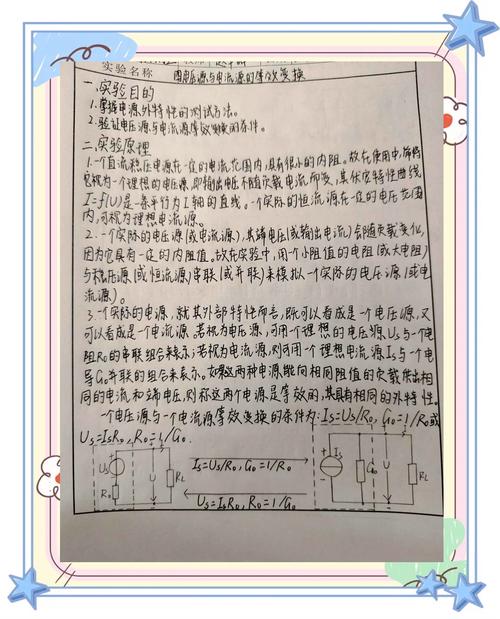 实验名称 电压源与电流源的等效变换
一.实验目的
1.掌握电源外特性的测试方法。
2.验证电压源与电流源等效变换的条件。
二.实验原理
1.一个直流稳压电源在一定的电流范围内,具有很小的内阻。故在使用中,常将
它视为一个理想的电压源,即输出电压不随负载电流而变,其伏安特性曲线
I=f(U)是一条平行为I轴的直线。一个实际的恒流源在一定的电压范围
内,可视为理想电流源。
2.一个实际的电压源(或电流源),其端电压(或输出电流)会随负载变化,
因为它具有一定的内阻值。故在实验中,用一个小阻值的电阻(或大电阻)
与稳压源(或恒流源)串联(或并联)来模拟一个实际的电压源(或电
流源)。
3.一个实际的电源,就其外部特性而言,既可以看成是一个电压源,又
可以看成是一个电流源。若视为电压源,可用一个理想的电压源Us与一个电
阻Ro的串联组合来表示;若视为电流源,则可用一个理想电流源Is与一个电
导Go并联的组合来表示。如果这两种电源能向相同阻值的负载供出相
同的电流和端电压,则称这两个电源是等效的,其具有相同的外特性。
一个电压源与一个电流源等效变换的条件为:Is=Us/Ro,Go=1/Ro或
Us=IsRo,Ro=1/Go.
Us Ro U RL
Is=Us/Ro,Go=1/Ro
Us=IsRo,Ro=1/Go
Is Go U RL